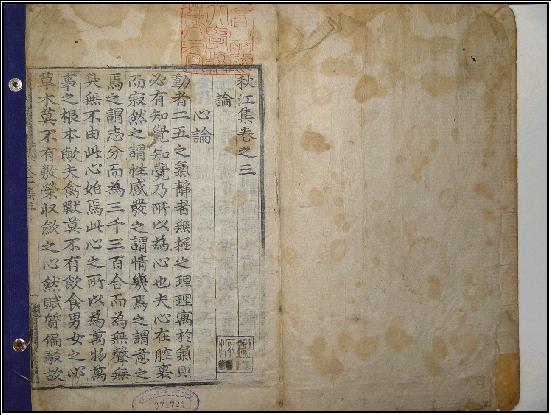 秋江集卷之三
論
心論
動者二五之氣靜者無極之理理寓於氣則
必有知覺知覺乃所以為心也夫心在腔裏
而寂然之謂性感發之謂情幾焉之謂意之
焉之謂志分而為三千三百合而為無聲無
臭無不由此心始焉此心之所以為萬物萬
事之根本歟夫禽獸莫不有飲食男女之心
草木莫不有敷榮收斂之心然賦質偏駁故